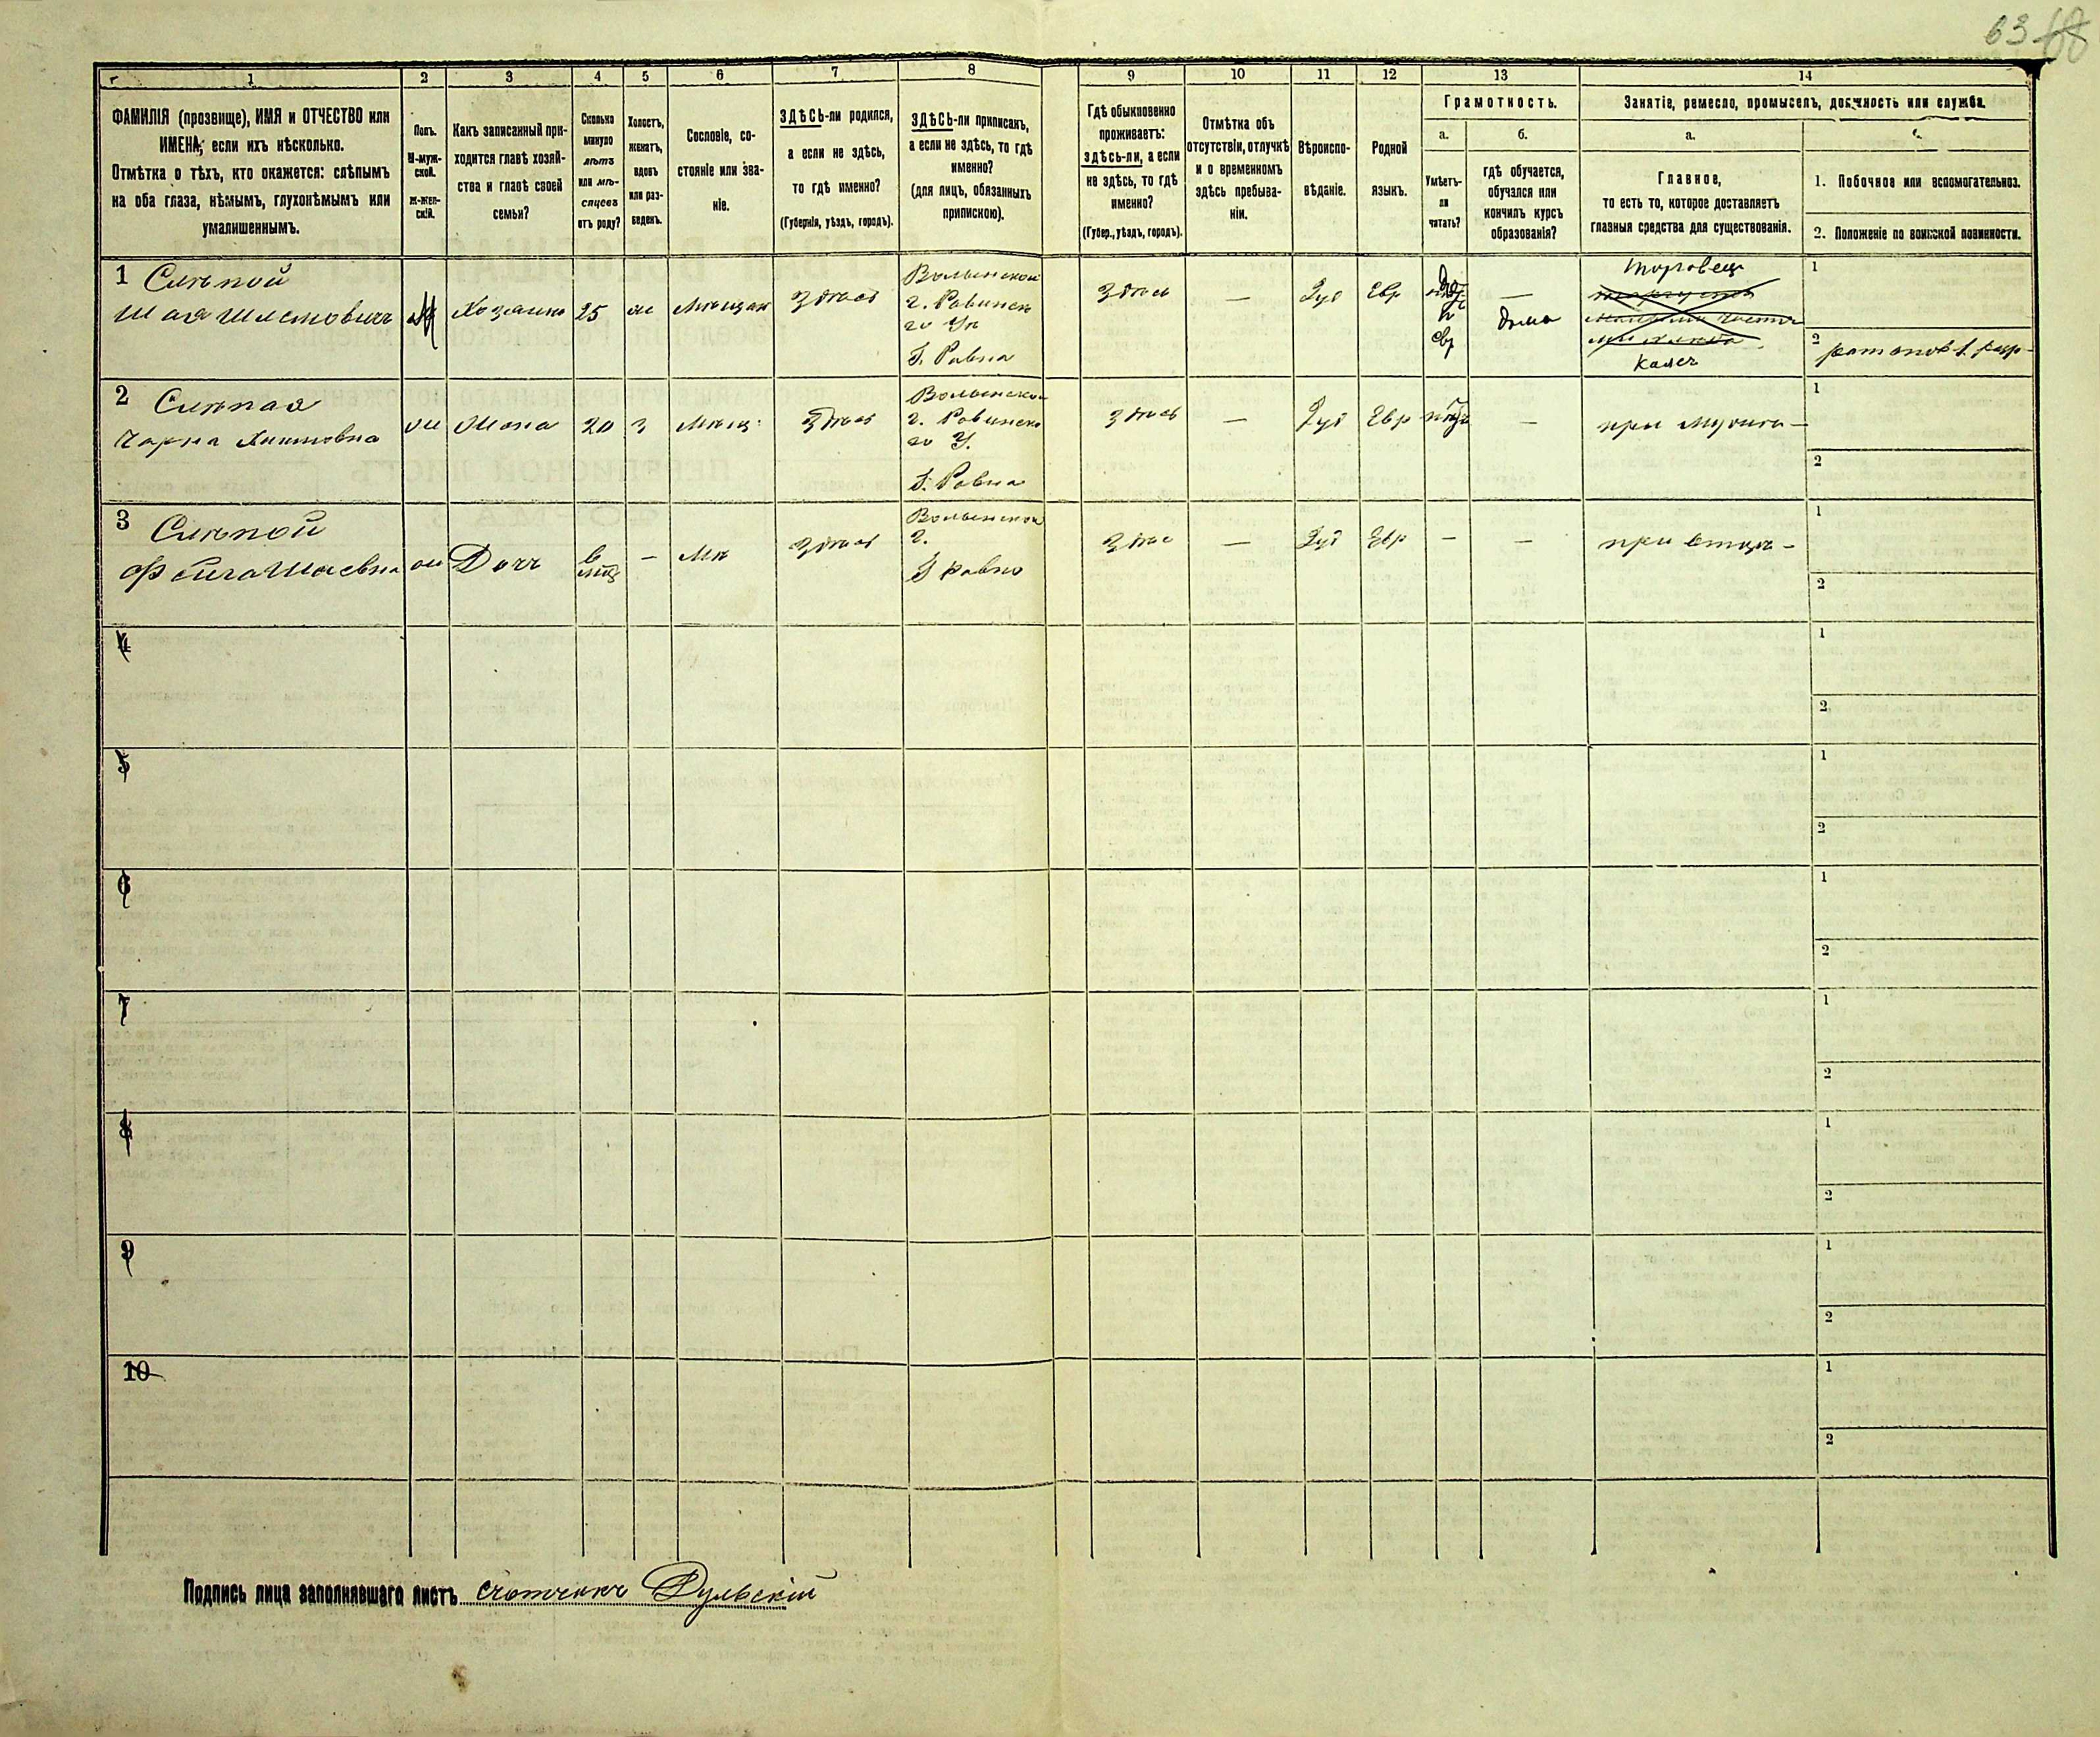 63 68
1 2 3 4 5 6 7 8 9 10 11 12 13 14
ФАМИЛІЯ (прозвище), ИМЯ и ОТЧЕСТВО или
ИМЕНА, если ихъ нѣсколько.
Отмѣтка о тѣхъ, кто окажется: слѣпымъ
на оба глаза, нѣмымъ, глухонѣмымъ или
умалишеннымъ.
Полъ.
М-муж-
ской.
Ж-жен-
скій.
Какъ записанный при-
ходится главѣ хозяй-
ства и главѣ своей
семьи?
Сколько
минуло
лѣтъ
или мѣ-
сяцевъ
отъ роду?
Холостъ,
женатъ,
вдовъ
или раз-
веденъ.
Сословіе, со-
стояніе или зва-
ніе.
ЗДѢСЬ-ли родился,
а если не здѣсь,
то гдѣ именно?
(Губернія, уѣздъ, городъ).
ЗДѢСЬ-ли приписанъ,
а если не здѣсь, то гдѣ
именно?
(для лицъ, обязанныхъ
припискою).
Гдѣ обыкновенно
проживаетъ:
здѣсь-ли, а если
не здѣсь, то гдѣ
именно?
(Губер., уѣздъ, городъ).
Отмѣтка объ
отсутствіи, отлучкѣ
и о временномъ
здѣсь пребыва-
ніи.
Вѣроиспо-
вѣданіе.
Родной
языкъ.
Грамотность.
а.
Умѣетъ-
ли
читать?
б.
гдѣ обучается,
обучался или
кончилъ курсъ
образованія?
Занятіе, ремесло, промыселъ, должность или служба.
а.
Главное,
то есть то, которое доставляетъ
главныя средства для существованія.
1. Побочное или вспомогательное.
2. Положеніе по воинской повинности.
1 Слѣпой
Шая Шлемовичъ
М
Хозяинъ
25
Мѣщан
Здѣсь
Волынской
г. Ровенск
го Уѣ
Г. Ровна
Здѣсь
—
Іуд
Евр
евр
—
дома
торговец
1
2
2 Слѣпая
Чарна
ж
Жена
20
З
Мѣщ.
Здѣсь
Волынской
г. Ровенск
го У.
Г. Ровна
Здѣсь
—
Іуд
Евр
—
при мужи
1
2
3 Слѣпой
Фейга Шаевна
ж
Дочь
6
мѣц
—
Мѣ
Здѣсь
Волынской
г.
Г Ровно
Здѣс
—
Іуд
Евр
—
—
при отцѣ
1
2
4
1
2
5
1
2
6
1
2
7
1
2
8
1
2
9
1
2
10
1
2
Подпись лица заполнявшаго листъ счотчикъ Дульскій